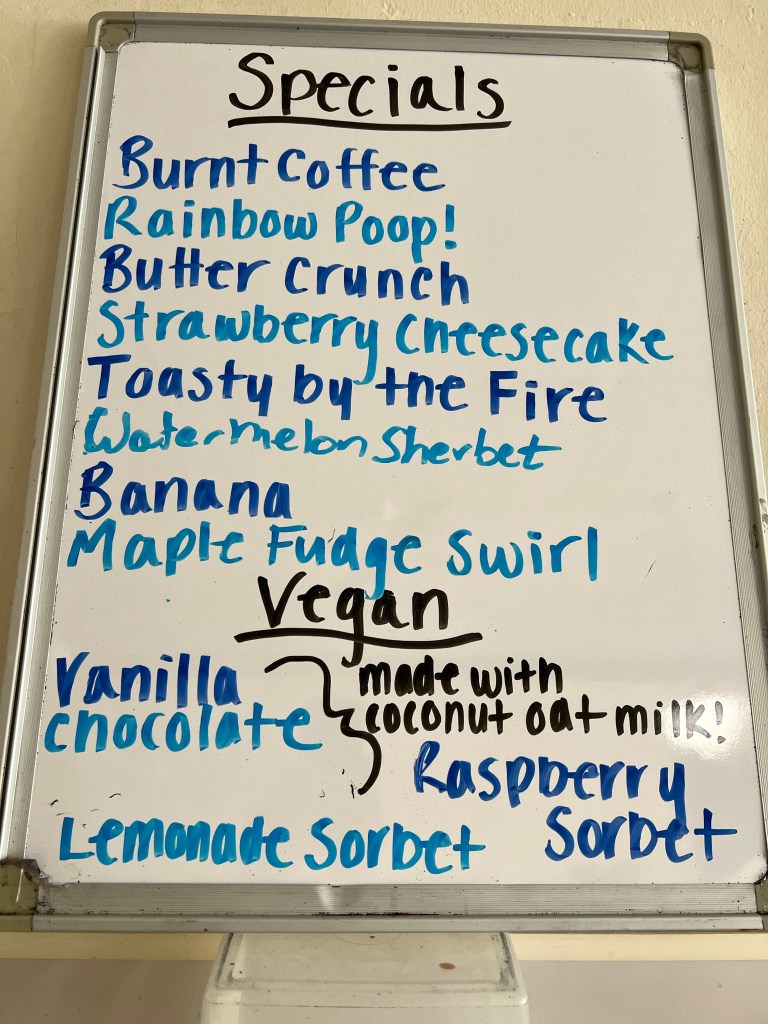 Specials
Burnt Coffee
Rainbow Poop!
Butter Crunch
Strawberry Cheesecake
Toasty by the Fire
Watermelon Sherbet
Banana
Maple Fudge Swirl
Vegan
Vanilla
chocolate
made with
coconut oat milk!
Raspberry
Sorbet
Lemonade Sorbet